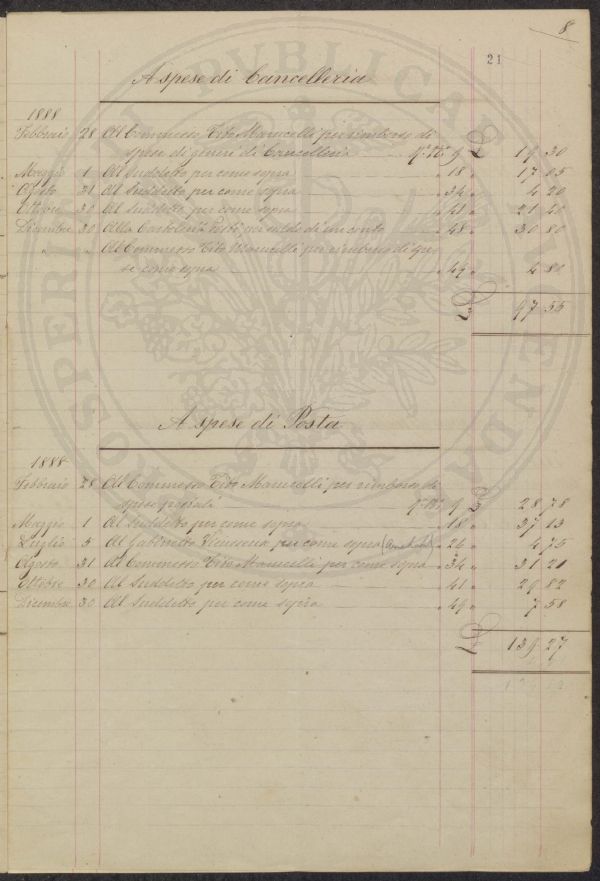 8
21
A spese di Cancelleria
1888
Febbraio 28 Al Commesso Tito Marucelli per rimborso di
spese di generi di Cancelleria № 9 £ 19 30
Maggio 1 Al Suddetto per come sopra " 18 " 17 05
Agosto 31 Al Suddetto per come sopra " 34 " 4 20
Ottobre 30 Al Suddetto per come sopra " 41 " 21 40
Dicembre 30 Alla Cartoleria per saldo di un conto " 48 " 30 80
" " Al Commesso Tito Marucelli per rimborso di spe
se come sopra " 49 " 4 80
£ 97 55
A spese di Posta
1888
Febbraio 28 Al Commesso Tito Marucelli per rimborso di
spese postali № 9 £ 28 78
Maggio 1 Al Suddetto per come sopra " 18 " 37 13
Luglio 5 Al Gabinetto Vieusseux per come sopra " 26 " 4 75
Agosto 31 Al Commesso Tito Marucelli per come sopra " 34 " 31 20
Ottobre 30 Al Suddetto per come sopra " 41 " 29 82
Dicembre 30 Al Suddetto per come sopra " 49 " 7 58
£ 139 27
PROSPERITATI PUBLICAE AUGENDAE